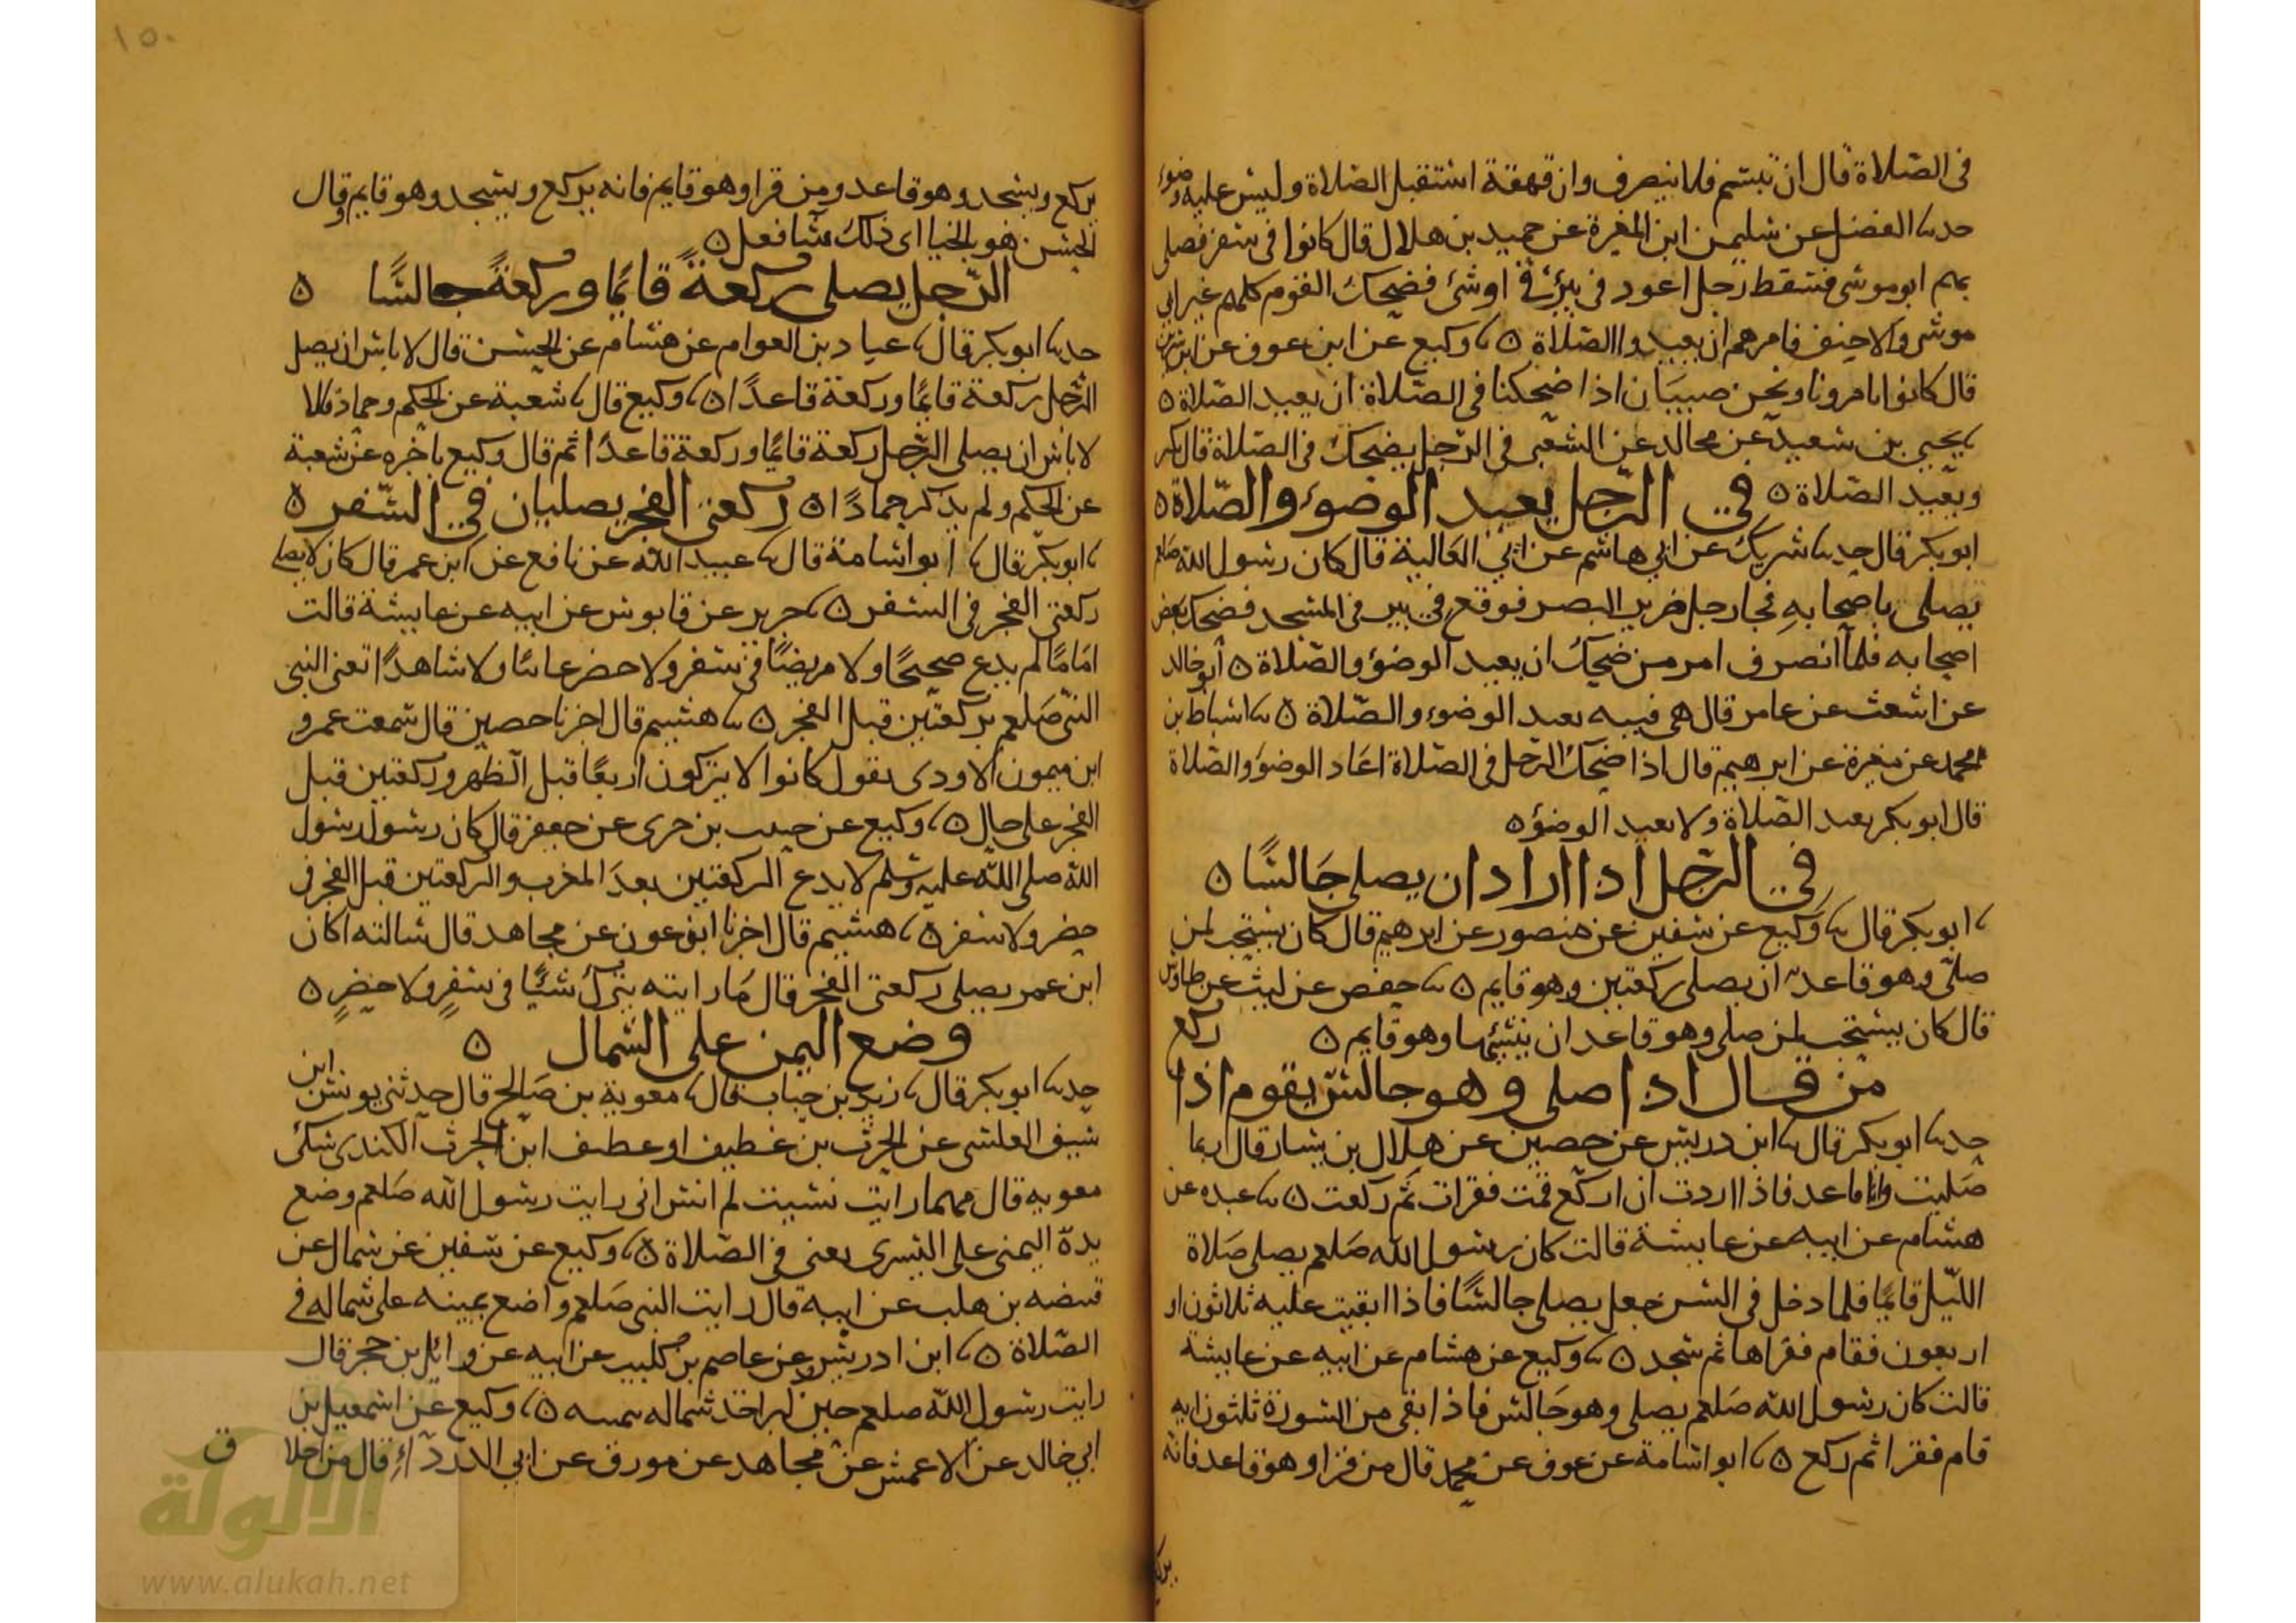 في الصلاة قال ان تبسم فلا ينصرف وان قهقة استقبل الصلاة وليس عليه وضوء
حدثنا الفضل عن سليمن ابن المغيرة عن حميد بن هلال قال كانوا في سفر فصلى
بهم ابو موسى فسقط رجل اعور في بير او شئ فضحك القوم كلهم غير ابي
موسى والاحنف فامرهم ان يعيدوا الصلاة ه ثنا وكيع عن ابن عوف عن ابن سيرين
قال كانوا يامرونا ونحن صبيان اذا ضحكنا في الصلاة ان نعيد الصلاة ه
ثنا يحيى بن سعيد عن مجالد عن الشعبي في الرجل يضحك في الصلاة قال يكبر
ويعيد الصلاة ه في الرجل يعيد الوضوء والصلاة ه
ابو بكر قال حدثنا شريك عن ابي هاشم عن ابي العالية قال كان رسول الله صلعم
يصلى باصحابه فجا رجل ضرير البصر فوقع في بير في المسجد فضحك بعض
اصحابه فلما انصرف امر من ضحك ان يعيد الوضوء والصلاة ه ابو خالد
عن اشعث عن عامر قال هي فيه يعيد الوضوء والصلاة ه ثنا اسباط بن
محمد عن مغيرة عن ابرهيم قال اذا ضحك الرجل في الصلاة اعاد الوضوء والصلاة
قال ابو بكر يعيد الصلاة ولا يعيد الوضوء ه
في الرجل اذا اراد ان يصلى جالسًا ه
ثنا ابو بكر قال ثنا وكيع عن سفين عن منصور عن ابرهيم قال كان يستحب لمن
صلى وهو قاعد ان يصلى ركعتين وهو قايم ه ثنا حفص عن ليث عن طاوس
قال كان يستحب لمن صلى وهو قاعد ان ينشئها وهو قايم ه ركع
من قال اذا صلى وهو جالس يقوم اذا
حدثنا ابو بكر قال ثنا ابن دريس عن حصين عن هلال بن يسار قال ربما
صليت وانا قاعد فاذا اردت ان اركع قمت فقرات ثم ركعت ه ثنا عبده عن
هشام عن ابيه عن عايشة قالت كان رسول الله صلعم يصلى صلاة
الليل قايمًا فلما دخل في السن جعل يصلى جالسًا فاذا ابقيت عليه ثلاثون او
اربعون فقام فقراها ثم سجد ه ثنا وكيع عن هشام عن ابيه عن عايشة
قالت كان رسول الله صلعم يصلى وهو جالس فاذا بقى من السورة ثلثون ايه
قام فقرا ثم ركع ه ثنا ابو اسامة عن عوف عن محمد قال من قرا وهو قاعد فانه
١٥٠
يركع ويسجد وهو قاعد ومن قرا وهو قايم فانه يركع ويسجد وهو قايم وقال
الحسن هو بالخيار اي ذلك شا فعل ه
الرجل يصلى ركعةً قايمًا وركعةً جالسًا ه
حدثنا ابو بكر قال ثنا عباد بن العوام عن هشام عن الحسن قال لا باس ان يصلى
الرجل ركعة قايمًا وركعة قاعدًا ه ثنا وكيع قال ثنا شعبة عن الحكم وحماد قالا
لا باس ان يصلى الرجل ركعة قايمًا وركعة قاعدًا ثم قال وكيع باخره عن شعبة
عن الحكم ولم يذكر حمادًا ه ركعتي الفجر يصليان في السفر ه
ثنا ابو بكر قال ثنا ابو اسامة قال ثنا عبيد الله عن نافع عن ابن عمر قال كان لا يصلى
ركعتي الفجر في السفر ه ثنا جرير عن قابوس عن ابيه عن عايشة قالت
اما ما لم يدع صحيحًا ولا مريضًا في سفر ولا حضر غائبًا ولا شاهدًا تعني النبي
النبي صلعم ركعتين قبل الفجر ه ثنا هشيم قال اخبرنا حصين قال سمعت عمرو
ابن ميمون الاودي يقول كانوا لا يتركون اربعًا قبل الظهر وركعتين قبل
الفجر على حال ه ثنا وكيع عن حبيب بن جرى عن جعفر قال كان رسول رسول
الله صلى الله عليه وسلم لا يدع الركعتين بعد المغرب والركعتين قبل الفجر في
حضر ولا سفر ه ثنا هشيم قال اخبرنا ابن عون عن مجاهد قال سالته اكان
ابن عمر يصلى ركعتي الفجر قال ما رايته يترك شيًا في سفرٍ ولا حضرٍ ه
وضع اليمين على الشمال ه
حدثنا ابو بكر قال ثنا زيد بن حباب قال ثنا معوية بن صالح قال حدثني يونس ابن
سيف العنسي عن الحرث بن غطيف او غطيف ابن الحرث الكندي شك
معويه قال مهما رايت نسيت لم انس اني رايت رسول الله صلعم وضع
يده اليمنى على اليسرى يعني في الصلاة ه ثنا وكيع عن سفين عن سمال عن
قبيصه بن هلب عن ابيه قال رايت النبي صلعم واضع يمينه على شماله في
الصلاة ه ثنا ابن ادريس عن عاصم بن كليب عن ابيه عن وائل بن حجر قال
رايت رسول الله صلعم حين كبر اخذ شماله بيمينه ه ثنا وكيع عن اسمعيل بن
ابي خالد عن الاعمش عن مجاهد عن مورق عن ابي الدرداء قال من اخلاق
الألوكة
www.alukah.net